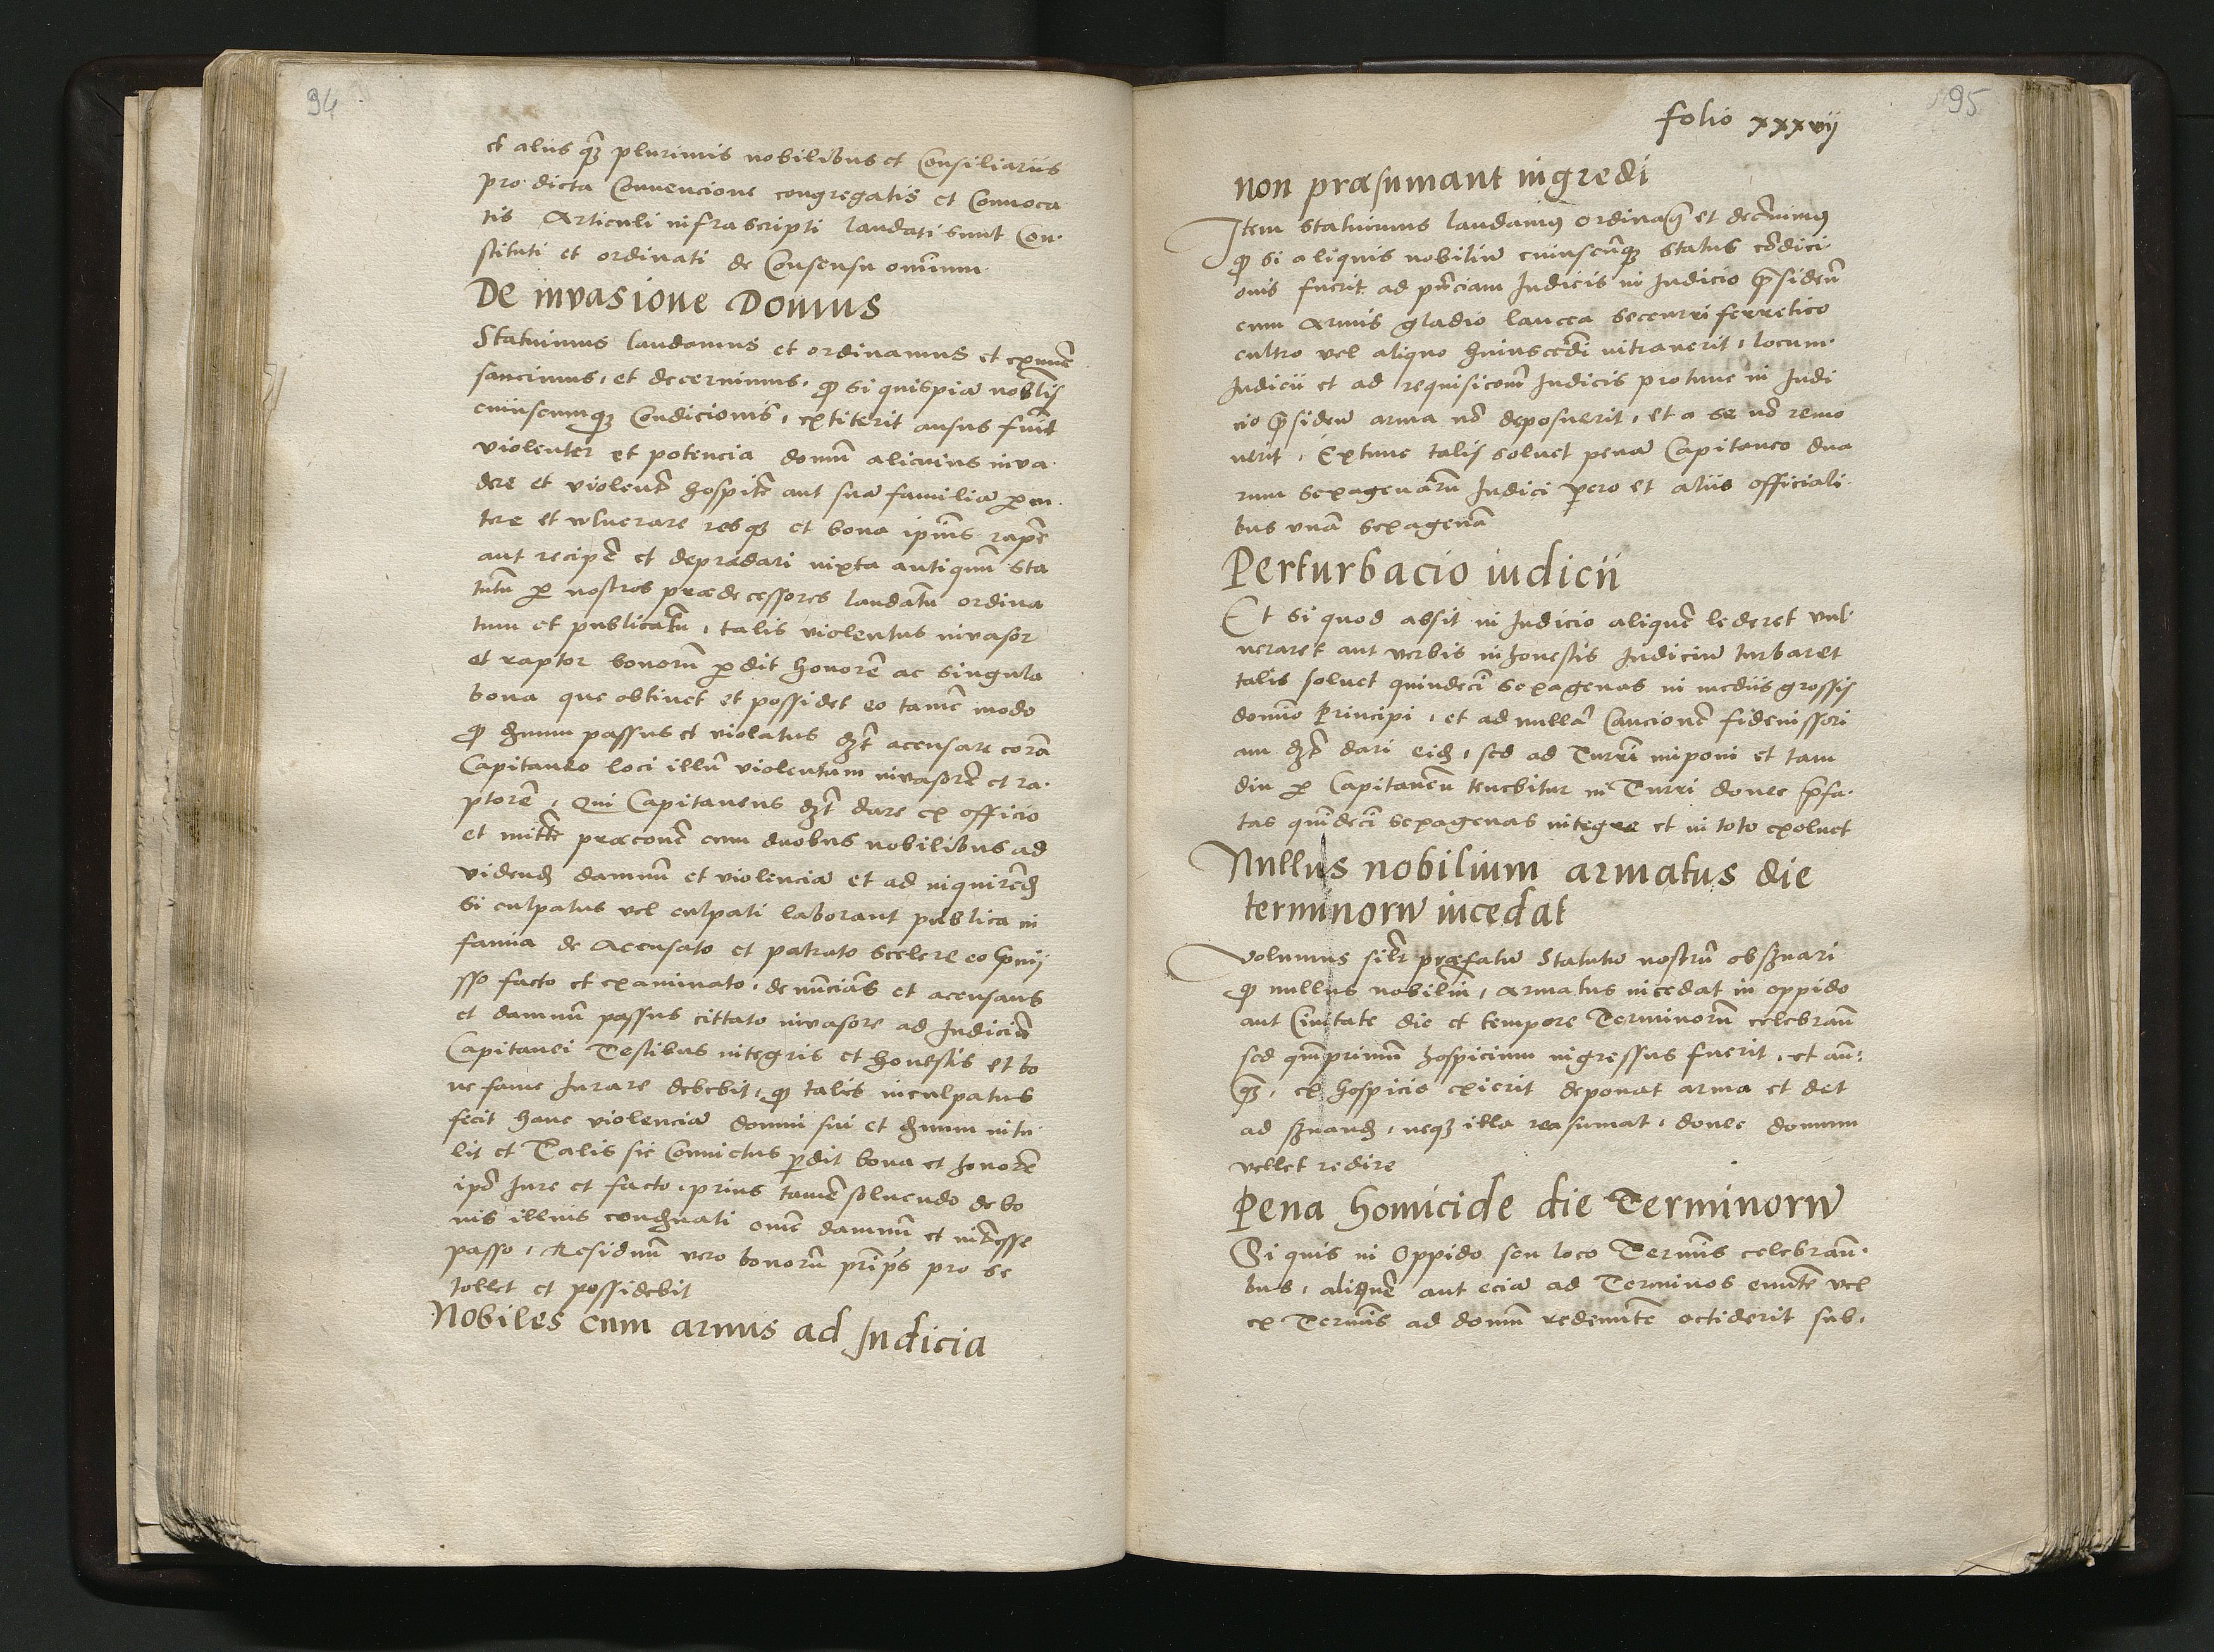 94
et alijs q̃ʒ plurimis nobilibus et Consiliarijs
pro dicta Conuencione congregatis et Conuoca
tis Articuli infrascripti laudati sunt Con·
stituti et ordinati de Consensu omnium·
De invasione Domus
Statuimus laudamus et ordinamus et
sancimus, et decernimus, ꝙ si quispiā nobilis
cuiuscumqʒ Condicionis, extiterit ausus fuit̃
violenter et potencia domū alicuius inva·
dere et violent̃ hospitē aut suā familiā ꝑcu·
tere et wlnerare resqʒ et bona ipiūs rapē
aut recipē et depredari iuxta antiquū sta
tutū ꝑ nostros prædecessores laudatū ordina
tum et publicatū, talis violentus invasor
et raptor bonorū ꝑdit honorē ac singula
bona que obtinet et possidet eo tamē modo
ꝙ dmnum passus et violatus dʒt acusare corā
Capitaneo loci illū violentum invasorē et ra·
ptorē, Qui Capitaneus dʒt dare ex officio
et mittē præconē cum duobus nobilibus ad
vidend̄ damnū et violenciā et ad inquirēd̄
si culpatus vel culpati laborant publica in
famia de Acusato et patrato scelere eo
sso facto et examinato, denūcians et acusans
et damnū passus cittato invasore ad Iudiciū
Capitanei Testibus integris et honestis et bo
ne fame Iurare debebit, ꝙ talis inculpatus
fecit hanc violenciā domui sui et dmnum intu
lit et Talis sic Conuictus ꝑdit bona et honorē
ipō Iure et facto, prius tamē soluendo de bo
nis illius condmnati omē damnū et intēsse
passo, Residuū vero bonorū prīps pro se
tollet et possidebit
Nobiles cum armis ad Iudicia
95
folio xxxvij
non præsumant ingredi
Item Statuimus laudamus ordinam̄ et decernimus
ꝙ si aliquis nobiliū cuiuscūqʒ status cōdici·
onis fuerit ad pñciam Iudicis in Iudicio p̄sideñ
cum armis gladio lancea securri ferretico
cultro vel aliquo huiuscēdi intrauerit, locum·
Iudicii et ad requisicōm Iudicis pro tunc in Iudi
cio p̄sideñ arma nō deposuerit, et a se nō remo
uerit, Extunc talis soluet penā Capitaneo dua
rum sexagenarū Iudici vero et alijs officiali·
bus vnā sexagenā
Perturbacio iudicii
Et si quod absit in Iudicio aliquē lederet vul
neraret aut verbis inhonestis Iudiciū turbaret
talis soluet quindecī sexagenas in medijs grossis
domīo Principi, et ad nullā Caucionē fideiussori
am dʒt dari eid̄, sed ad Turrī imponi et tam
diu ꝑ Capitaneū tenebitur in Turri donec p̄fa·
tas quīdecī sexagenas integre et in toto exoluet
Nullus nobilium armatus die
terminorū incedat
Volumus silr̄ præfatū Statutū nostrū obsʒuari
ꝙ nullus nobiliū, Armatus incedat in oppido
aut Ciuitate die et tempore Terminorū celebrañ
sed quāprimū hospicium ingressus fuerit, et an:
q̃ʒ, ex hospicio exierit deponat arma et det
ad sʒuand̄, neqʒ illa reasumat, donec domum
vellet redire
Pena homicide die Terminorū
Si quis in Oppido seu loco Termīs celebrañ·
bus, aliquē aut eciā ad Terminos euntē vel
ex Termīs ad domū redeuntē occiderit sub·